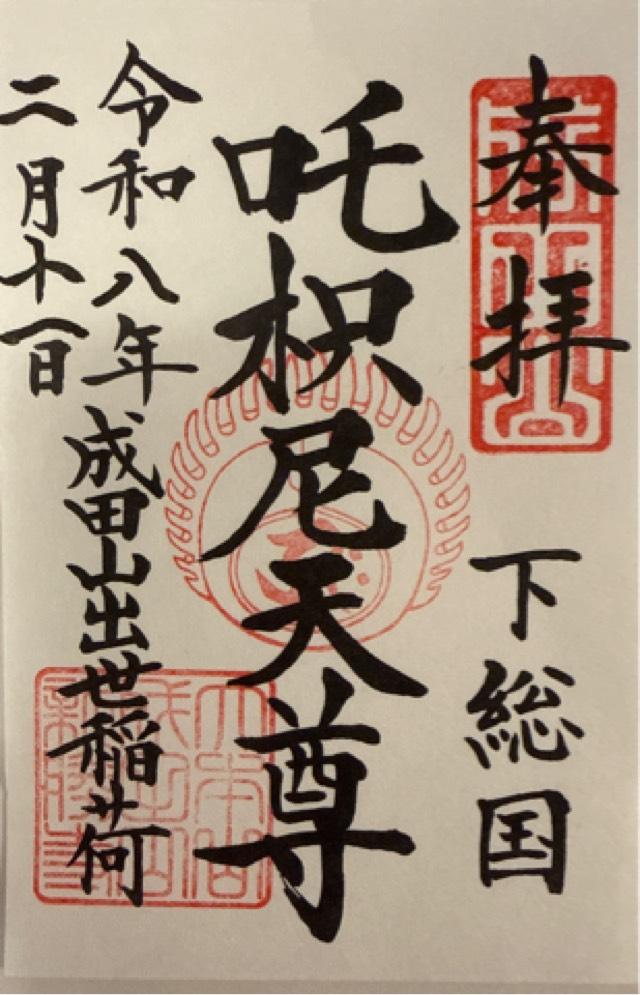 奉拝
下総国
吒枳尼天尊
令和八年
二月十一日
成田山出世稲荷